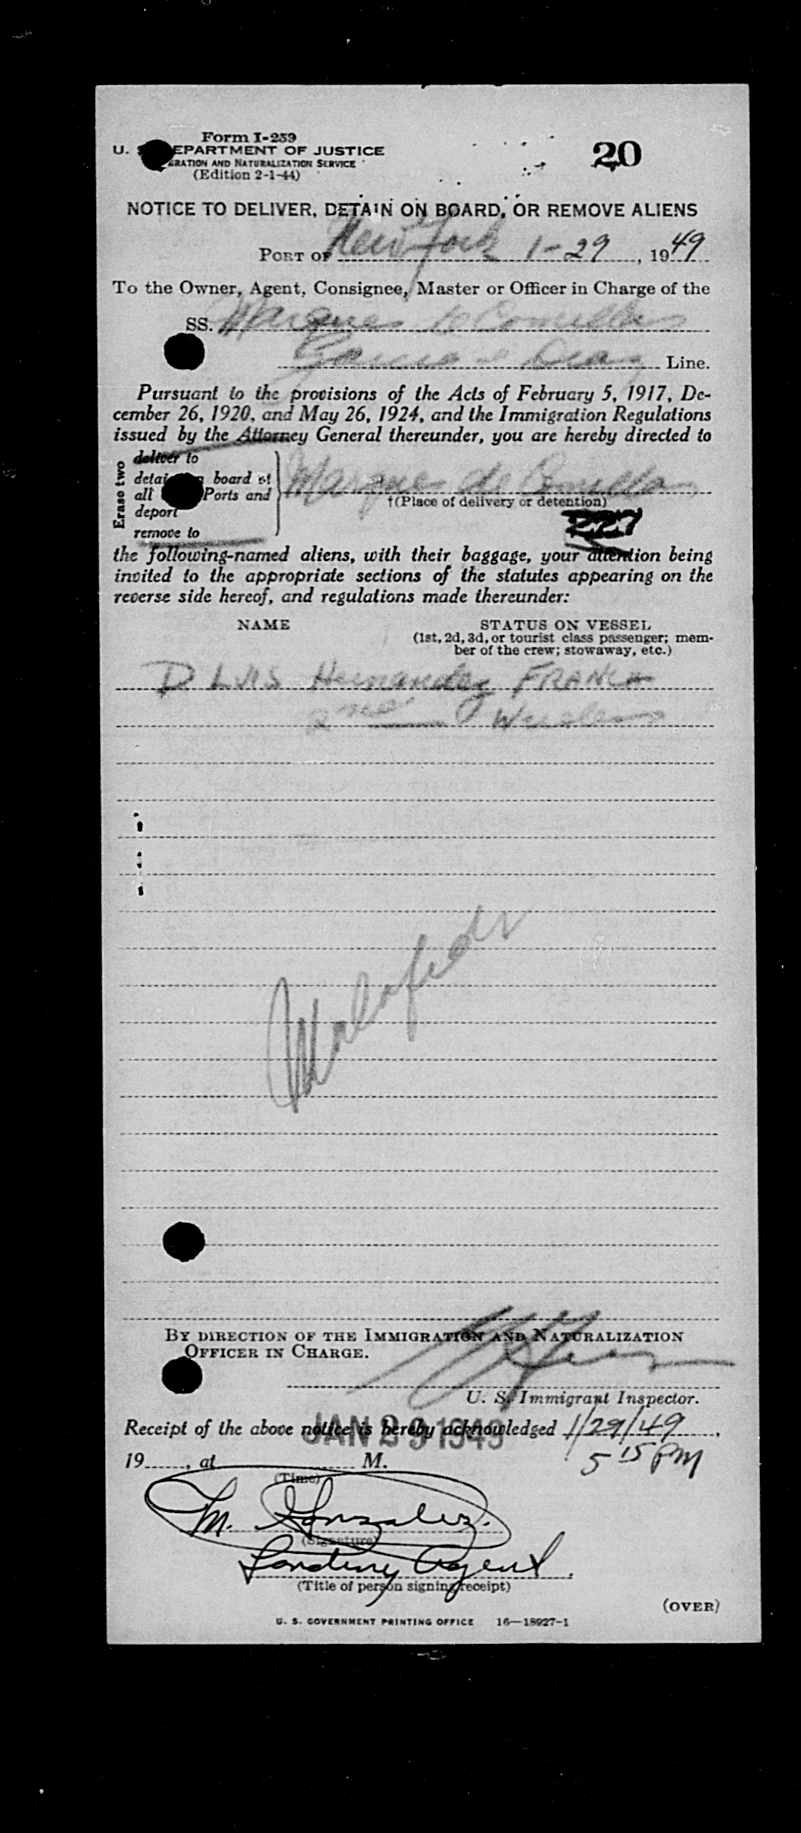 Form I-259
20
U. S. DEPARTMENT OF JUSTICE
IMMIGRATION AND NATURALIZATION SERVICE
(Edition 2-1-44)
NOTICE TO DELIVER, DETAIN ON BOARD, OR REMOVE ALIENS
PORT OF New York 1-29, 1949
To the Owner, Agent, Consignee, Master or Officer in Charge of the
SS. Marques de Comillas
Garcia & Diaz Line.
Pursuant to the provisions of the Acts of February 5, 1917, De-
cember 26, 1920, and May 26, 1924, and the Immigration Regulations
issued by the Attorney General thereunder, you are hereby directed to
Erase two
deliver to
detain on board at
all Ports and
deport
remove to
Marques de Comillas
†(Place of delivery or detention)
227
the following-named aliens, with their baggage, your attention being
invited to the appropriate sections of the statutes appearing on the
reverse side hereof, and regulations made thereunder:
NAME
STATUS ON VESSEL
(1st, 2d, 3d, or tourist class passenger; mem-
ber of the crew; stowaway, etc.)
D LUIS Hernandez FRANCO
2nd Wireless
Malafide
BY DIRECTION OF THE IMMIGRATION AND NATURALIZATION
OFFICER IN CHARGE.
U. S. Immigrant Inspector.
JAN 29 1949
Receipt of the above notice is hereby acknowledged 1/29/49,
19, at M. 5 15 PM
(Time)
M. Gonzalez.
(Signature)
Landing Agent.
(Title of person signing receipt)
(OVER)
U. S. GOVERNMENT PRINTING OFFICE 16—18927-1